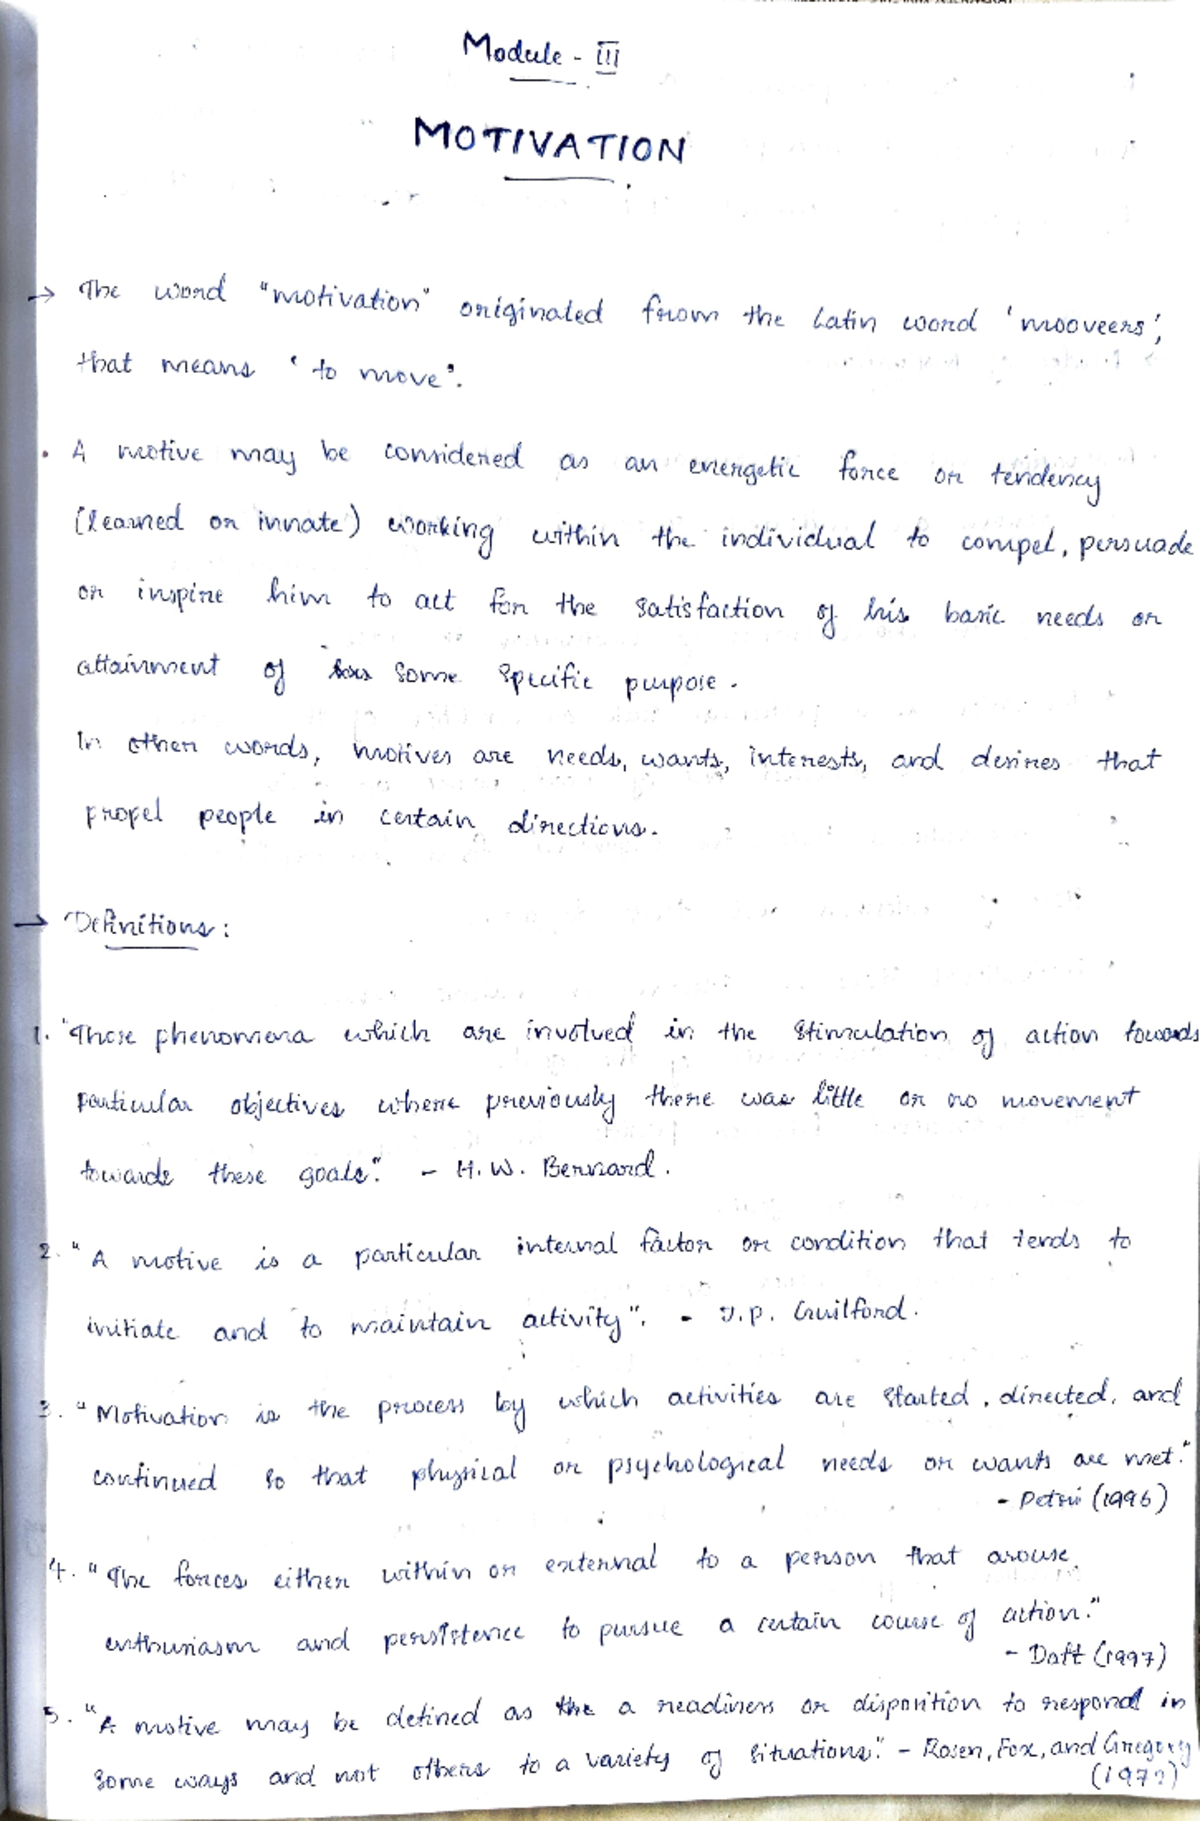 Module - III
MOTIVATION
→ The word "motivation" originated from the Latin word 'mooveers',
that means 'to move'.
• A motive may be considered as an energetic force or tendency
(learned or innate) working within the individual to compel, persuade
or inspire him to act for the satisfaction of his basic needs or
attainment of some specific purpose.
In other words, motives are needs, wants, interests, and desires that
propel people in certain directions.
→ Definitions:
1. "Those phenomena which are involved in the stimulation of action towards
particular objectives where previously there was little or no movement
towards these goals". - H. W. Bernard.
2. "A motive is a particular internal factor or condition that tends to
initiate and to maintain activity". - J.P. Guilford.
3. "Motivation is the process by which activities are started, directed, and
continued so that physical or psychological needs or wants are met."
- Petri (1996)
4. "The forces either within or external to a person that arouse
enthusiasm and persistence to pursue a certain course of action."
- Daft (1997)
5. "A motive may be defined as the a readiness or disposition to respond in
some ways and not others to a variety of situations." - Rosen, Fox, and Gregory